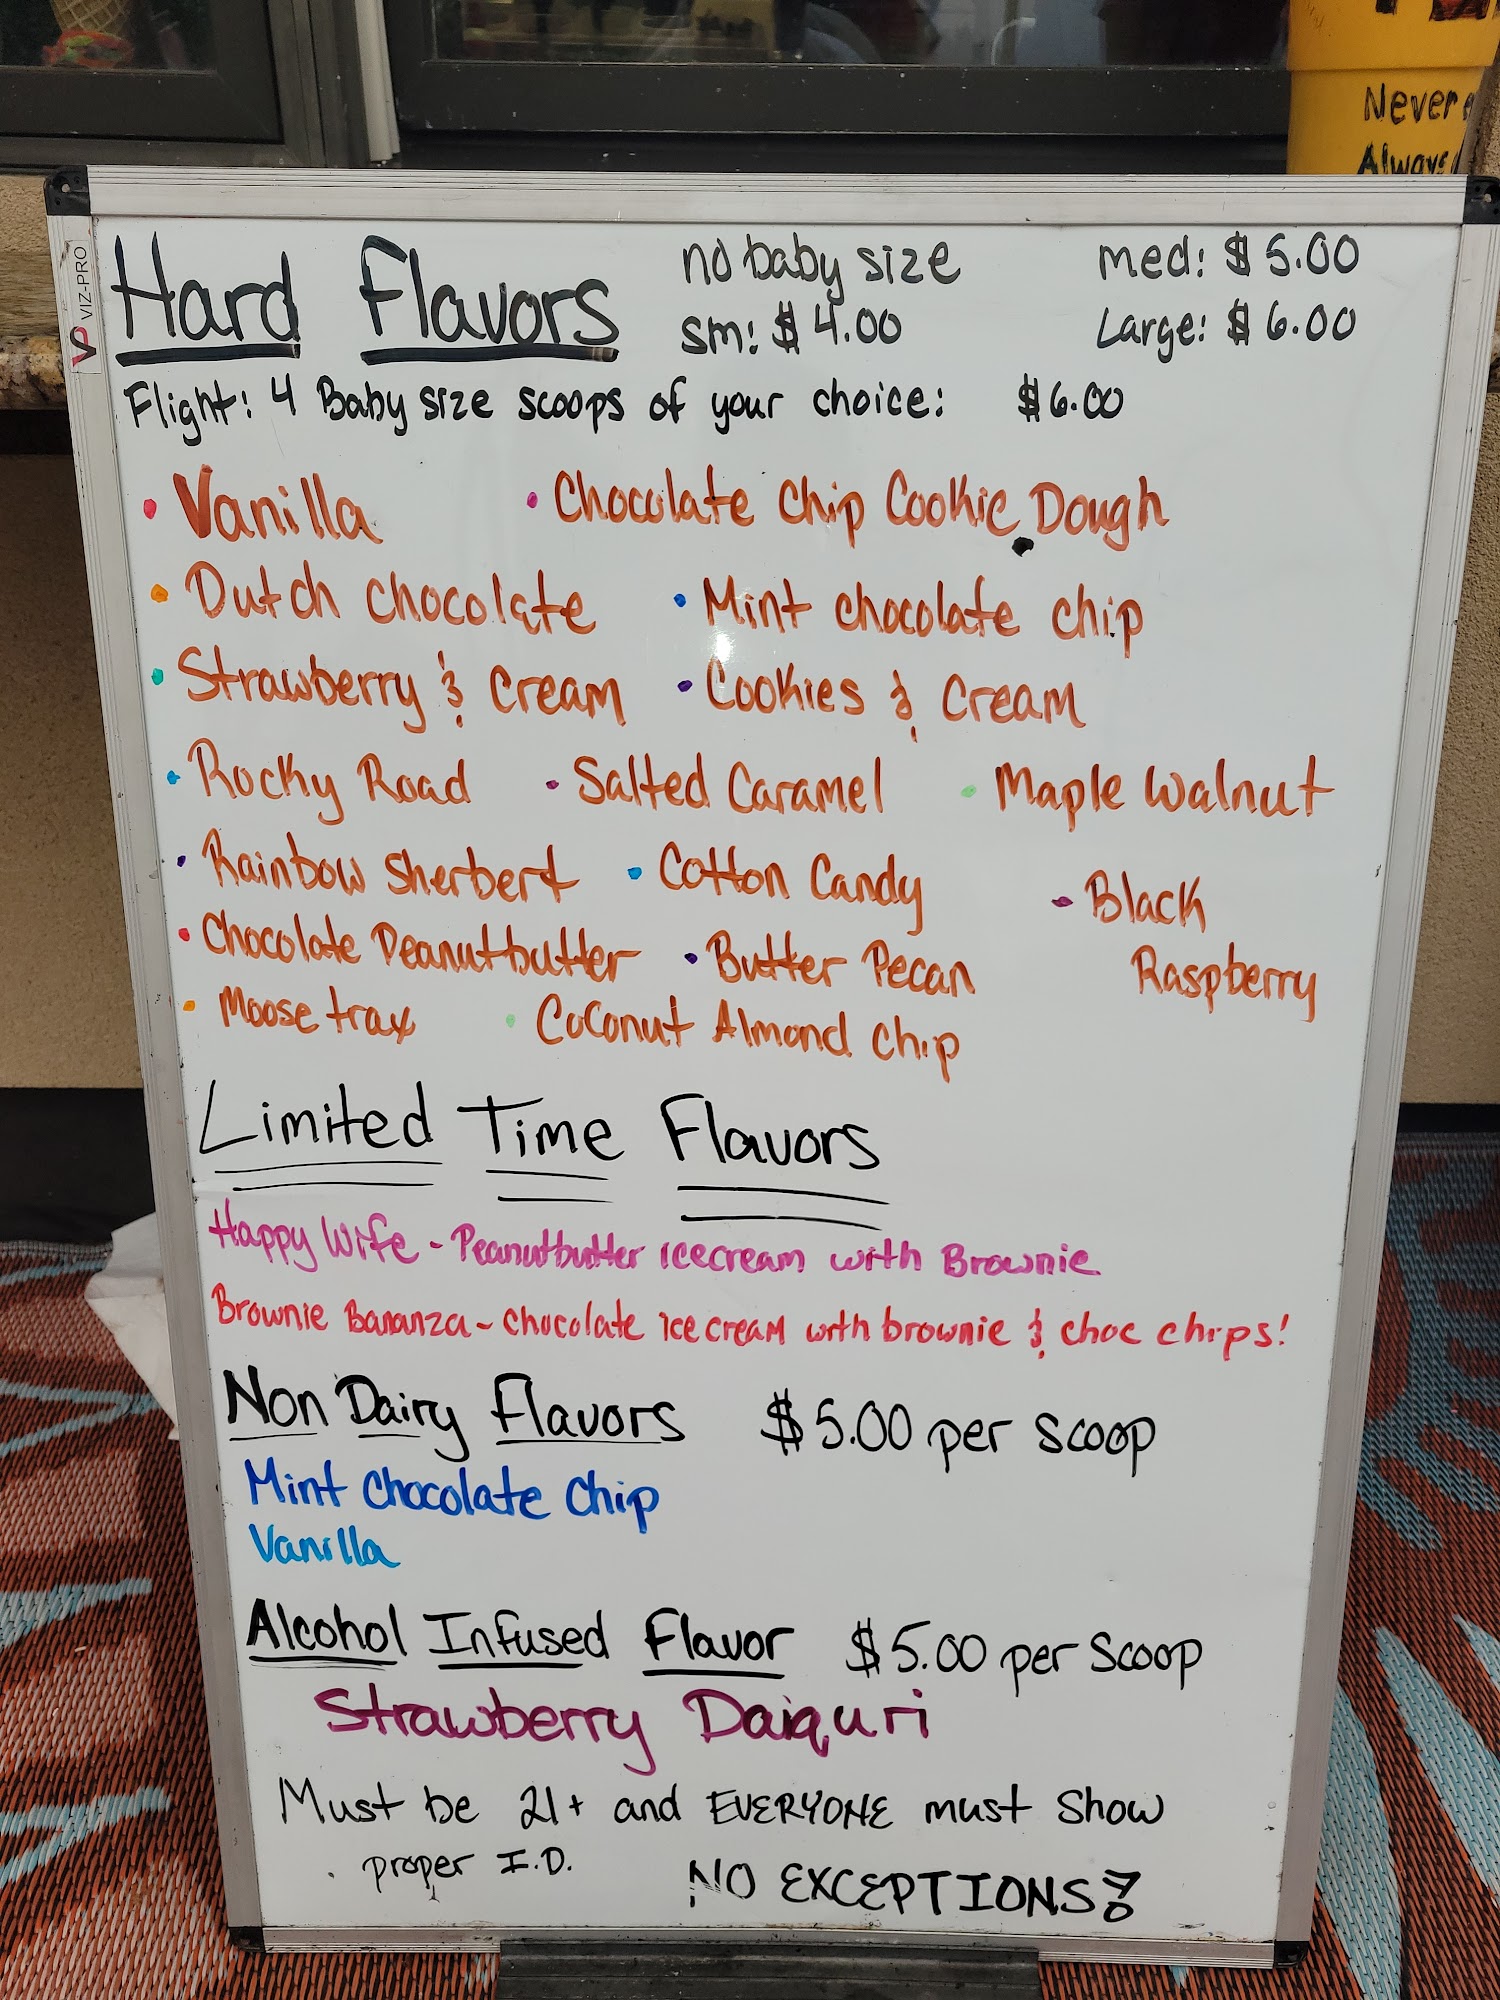 Never
Always
VIZ-PRO
Hard Flavors
no baby size
sm: $4.00
med: $5.00
Large: $6.00
Flight: 4 Baby size scoops of your choice: $6.00
• Vanilla • Chocolate Chip Cookie Dough
• Dutch chocolate • Mint chocolate chip
• Strawberry & cream • Cookies & cream
• Rocky Road • Salted Caramel • Maple Walnut
• Rainbow sherbert • Cotton Candy • Black Raspberry
• Chocolate Peanutbutter • Butter Pecan
• Moose trax • Coconut Almond chip
Limited Time Flavors
Happy Wife - Peanutbutter icecream with Brownie
Brownie Bananza - chocolate ice cream with brownie & choc chips!
Non Dairy Flavors $5.00 per scoop
Mint Chocolate Chip
Vanilla
Alcohol Infused Flavor $5.00 per scoop
Strawberry Daiquri
Must be 21+ and EVERYONE must show
proper I.D. NO EXCEPTIONS!